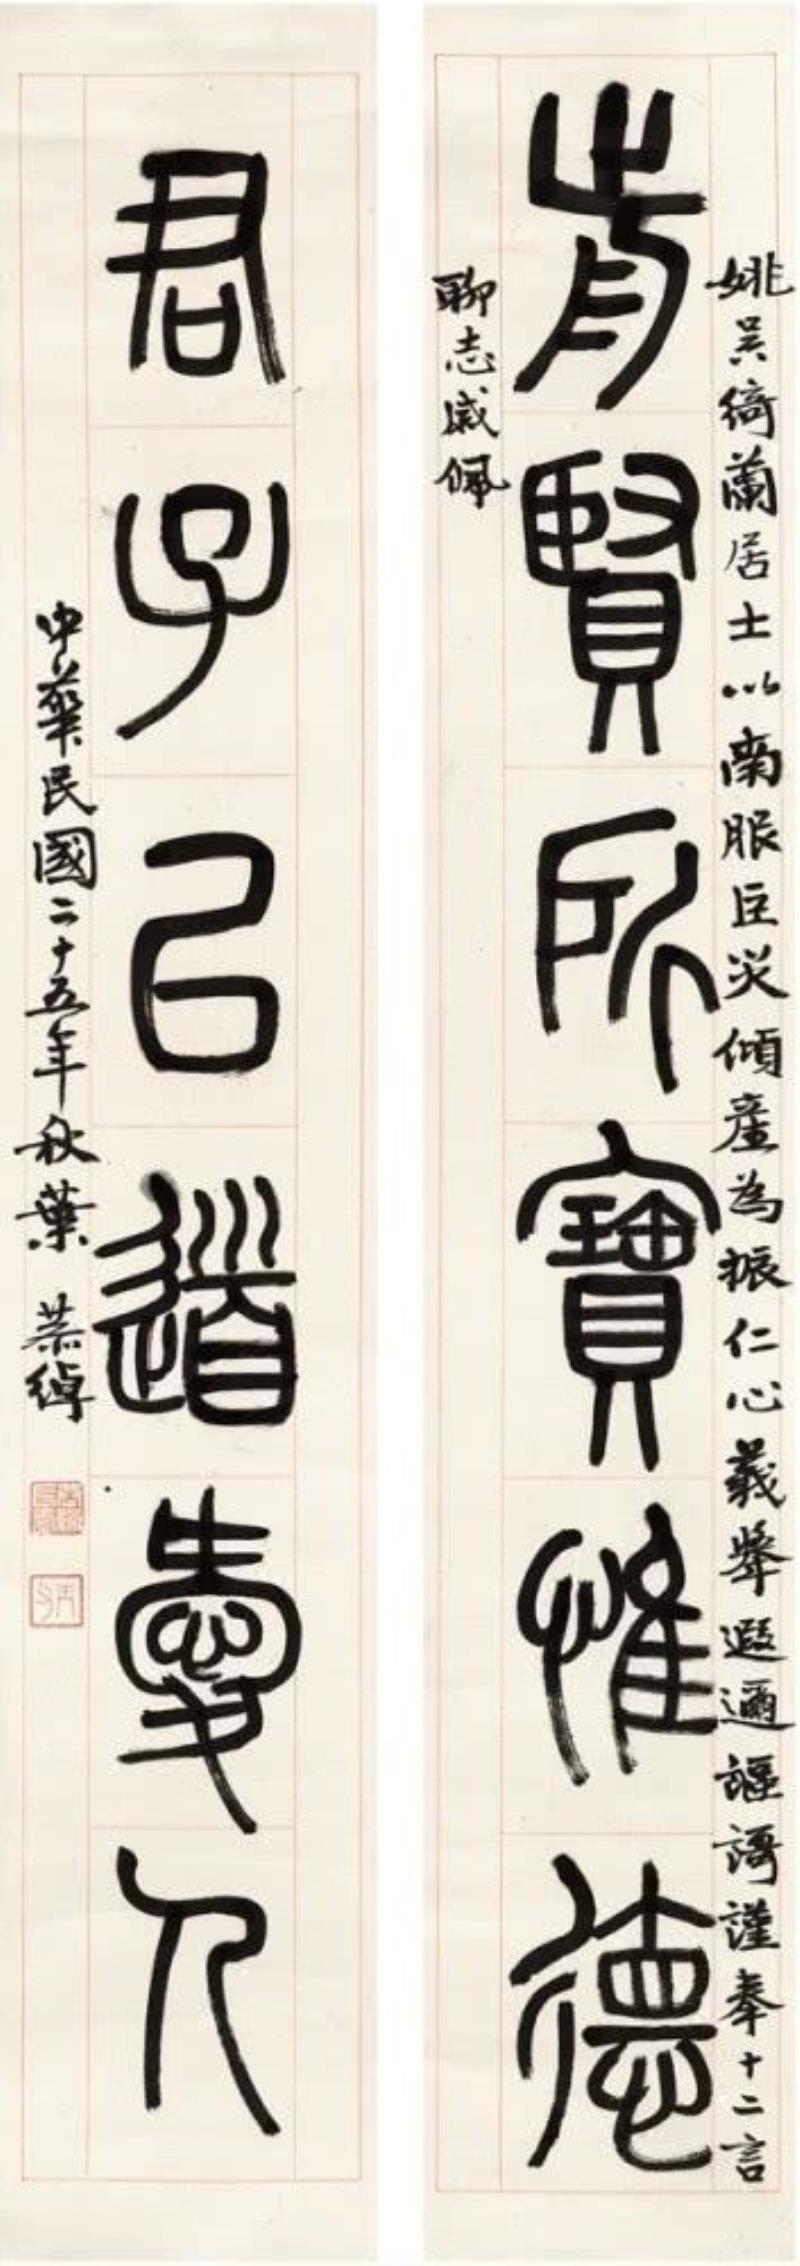 姚吳綺蘭居士以南服巨災傾產為振仁心義舉遐邇謳謌謹奉十二言
歬賢所寶惟德
聊志感佩
君子㠯道愛人
中華民國二十五年秋葉恭綽